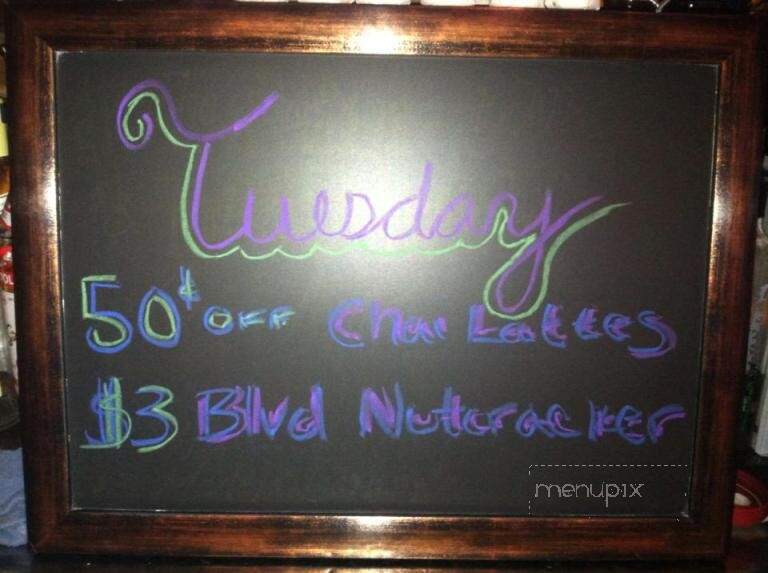 Tuesday
50¢ OFF Chai Lattes
$3 Blvd Nutcracker
menupix